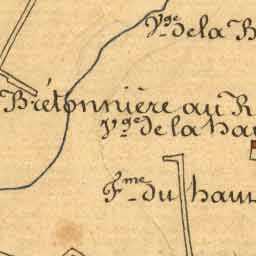 Vge de la B
Brétonnière au R
Vge de la hau
Fme du hau